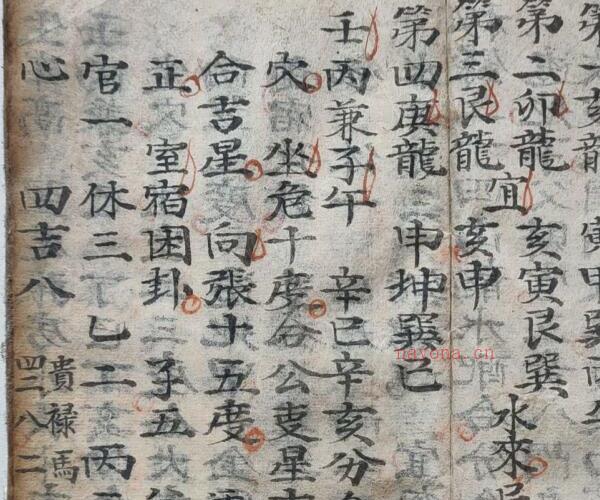 第一亥龍 寅甲
第二卯龍 宜 亥寅艮巽 水來
第三艮龍 亥申
第四庚龍 申坤巽巳
壬丙兼子午 辛巳辛亥分
穴 坐危十度分公吏星
合吉星 向張十五度
正 室宿困卦 三子五
官一休三 乙二丙
心 四吉八 貴禄馬
四二八二
nayona.cn